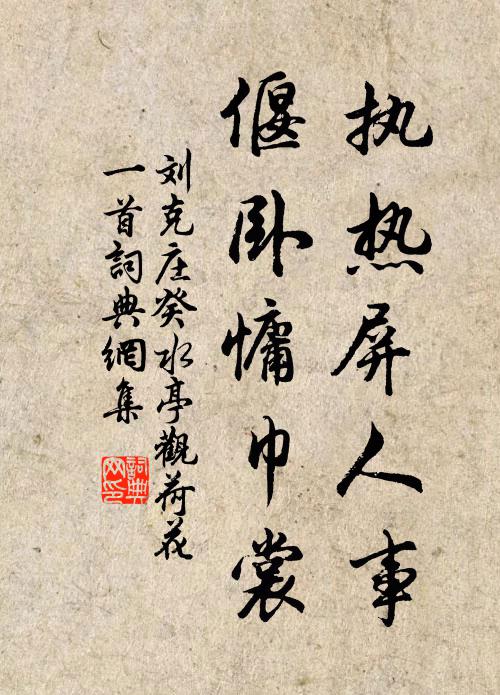 执热屏人事
偃卧慵巾裳
刘克庄癸水亭觀荷花
一首詞典網集
詞典
网印